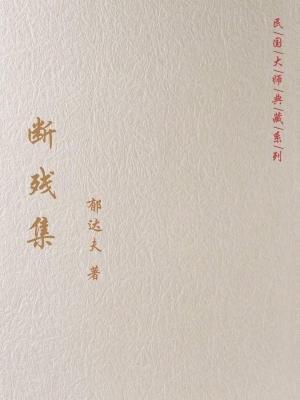 民国大师典藏系列
断残集
郁达夫 著